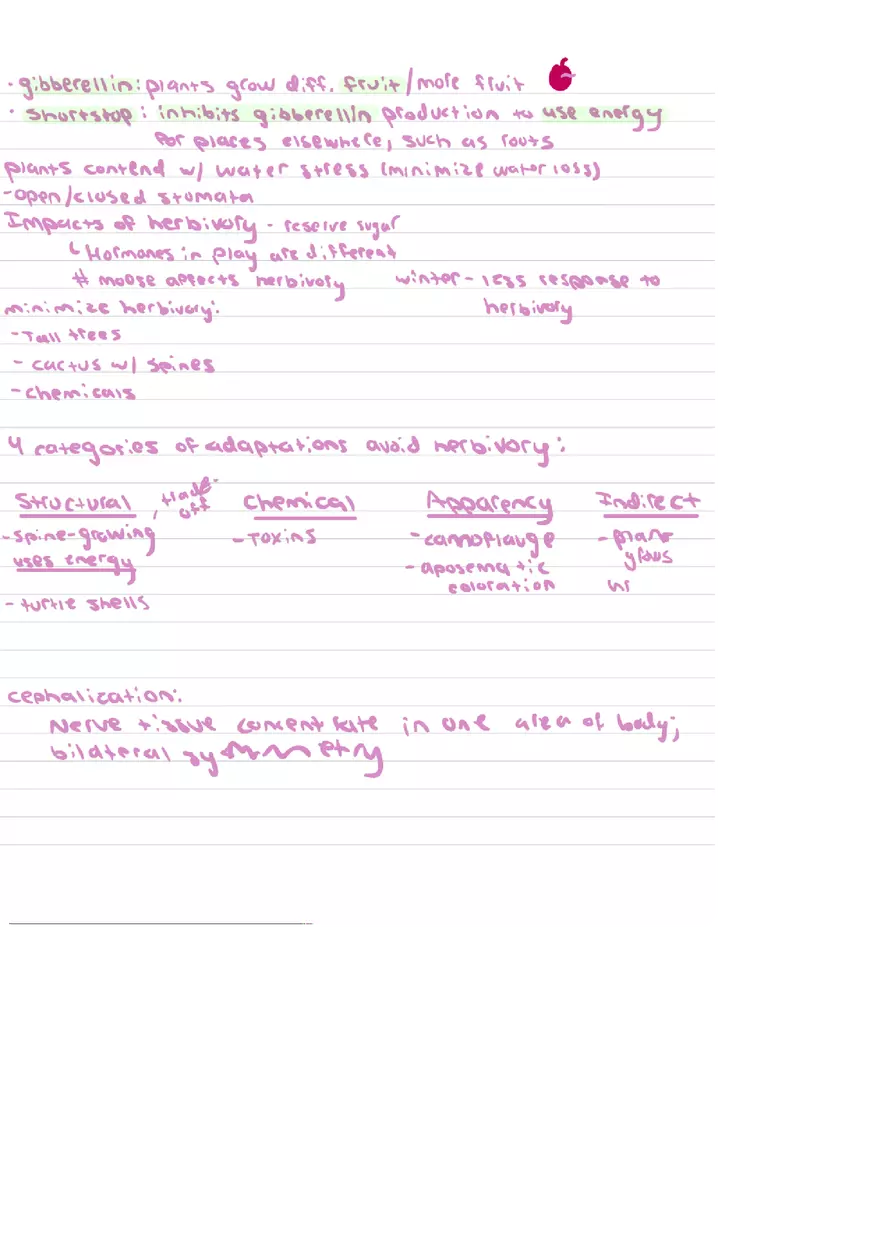 · gibberellin: plants grow diff. fruit/more fruit
· Shortstop: inhibits gibberellin production to use energy
for places elsewhere, such as roots
plants contend w/ water stress (minimize water loss)
-open/closed stomata
Impacts of herbivory - reserve sugar
↳ Hormones in play are different
# moose affects herbivory winter - less response to
herbivory
minimize herbivory:
- Tall trees
- cactus w/ spines
- chemicals
4 categories of adaptations avoid herbivory:
Structural , trade-off Chemical Apparency Indirect
- spine-growing - Toxins - camoflauge - plant
uses energy - aposematic grows
coloration w/
- turtle shells
cephalization:
Nerve tissue concentrate in one area of body;
bilateral symmetry